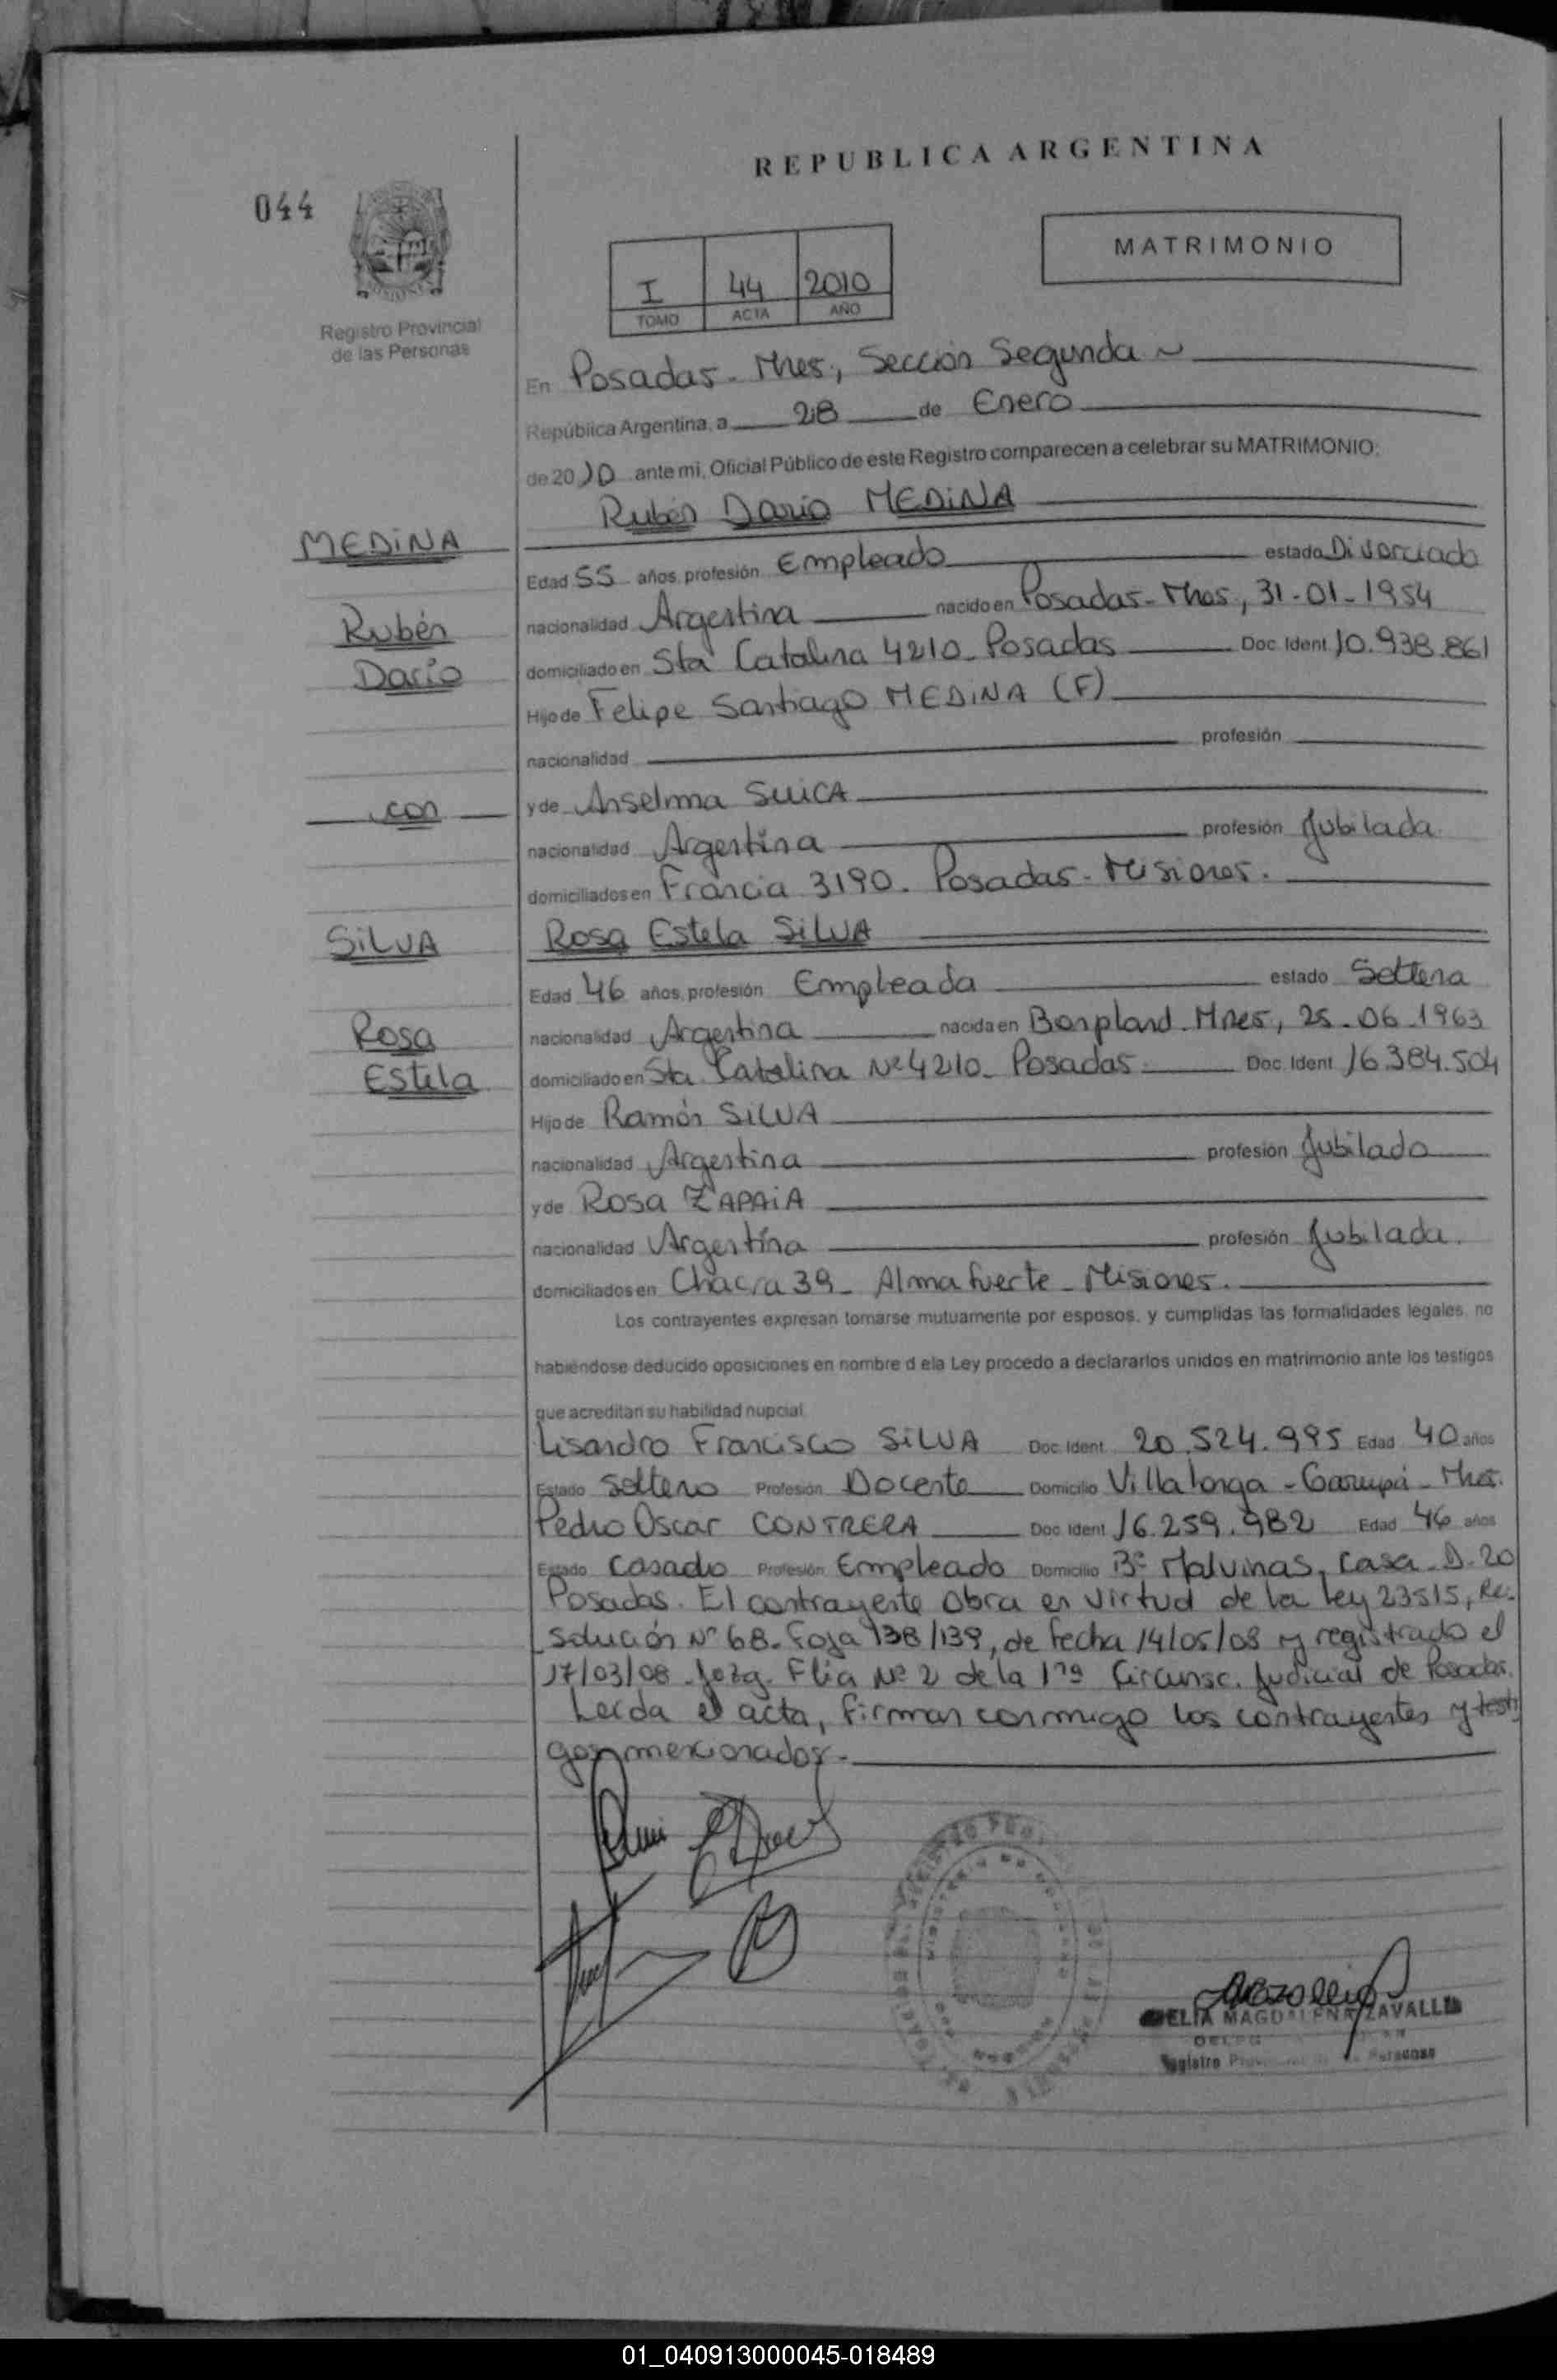 REPUBLICA ARGENTINA
044
MATRIMONIO
I 44 2010
TOMO ACTA AÑO
Registro Provincial
de las Personas
En Posadas - Mnes, Sección Segunda
República Argentina, a 28 de Enero
de 2010 ante mi, Oficial Público de este Registro comparecen a celebrar su MATRIMONIO:
Rubén Darío MEDINA
MEDINA
Edad 55 años, profesión Empleado estado Divorciado
Rubén
nacionalidad Argentina nacido en Posadas - Mnes, 31-01-1954
Darío
domiciliado en Sta Catalina 4210 - Posadas Doc. Ident. 10.938.861
Hijo de Felipe Santiago MEDINA (F)
nacionalidad profesión
con
y de Anselma SUICA
nacionalidad Argentina profesión Jubilada
domiciliados en Francia 3190. Posadas - Misiones.
SILVA
Rosa Estela SILVA
Edad 46 años, profesión Empleada estado Soltera
Rosa
nacionalidad Argentina nacida en Bonpland - Mnes, 25-06-1963
Estela
domiciliado en Sta. Catalina Nº 4210 - Posadas Doc. Ident. 16.384.504
Hijo de Ramón SILVA
nacionalidad Argentina profesión Jubilado
y de Rosa ZAPAIA
nacionalidad Argentina profesión Jubilada.
domiciliados en Chacra 39 - Almafuerte - Misiones.
Los contrayentes expresan tomarse mutuamente por esposos, y cumplidas las formalidades legales, no
habiéndose deducido oposiciones en nombre d ela Ley procedo a declararlos unidos en matrimonio ante los testigos
que acreditan su habilidad nupcial
Lisandro Francisco SILVA Doc. Ident. 20.524.995 Edad 40 años
Estado Soltero Profesión Docente Domicilio Villalonga - Garupá - Mnes.
Pedro Oscar CONTRERA Doc. Ident. 16.259.982 Edad 46 años
Estado Casado Profesión Empleado Domicilio Bº Malvinas, Casa D-20
Posadas. El contrayente obra en virtud de la Ley 23515, Re-
solución Nº 68 - Foja 138/139, de fecha 14/05/08 y registrado el
17/03/08 - Juzg. Flia Nº 2 de la 1ra Circunsc. Judicial de Posadas.
Leida el acta, firman conmigo los contrayentes y testi
gos mencionados.
MAGDALENA ZAVALLA
Registro
01_040913000045-018489